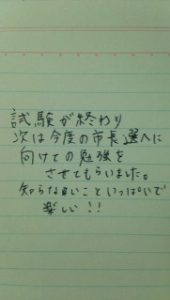 試験が終わり
次は今度の市長選へに
向けての勉強を
させてもらいました。
知らない事いっぱいで
楽しい!!